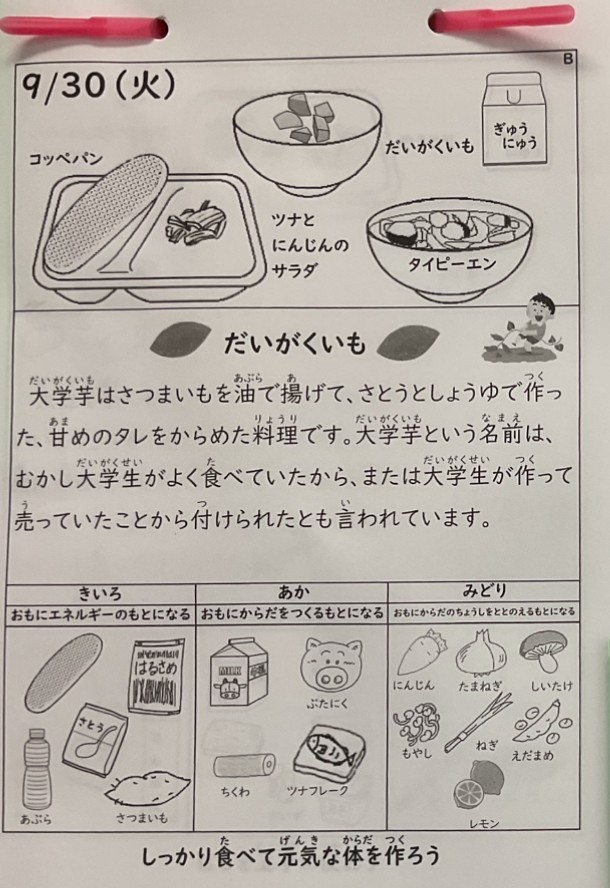 B
9/30(火)
ぎゅう
にゅう
だいがくいも
コッペパン
ツナと
にんじんの
サラダ
タイピーエン
だいがくいも
大学芋はさつまいもを油で揚げて、さとうとしょうゆで作っ
た、甘めのタレをからめた料理です。大学芋という名前は、
むかし大学生がよく食べていたから、または大学生が作って
売っていたことから付けられたとも言われています。
きいろ
おもにエネルギーのもとになる
はるさめ
さとう
あぶら
さつまいも
あか
おもにからだをつくるもとになる
MILK
ぶたにく
ちくわ
ツナフレーク
みどり
おもにからだのちょうしをととのえるもとになる
にんじん
たまねぎ
しいたけ
もやし
ねぎ
えだまめ
レモン
しっかり食べて元気な体を作ろう